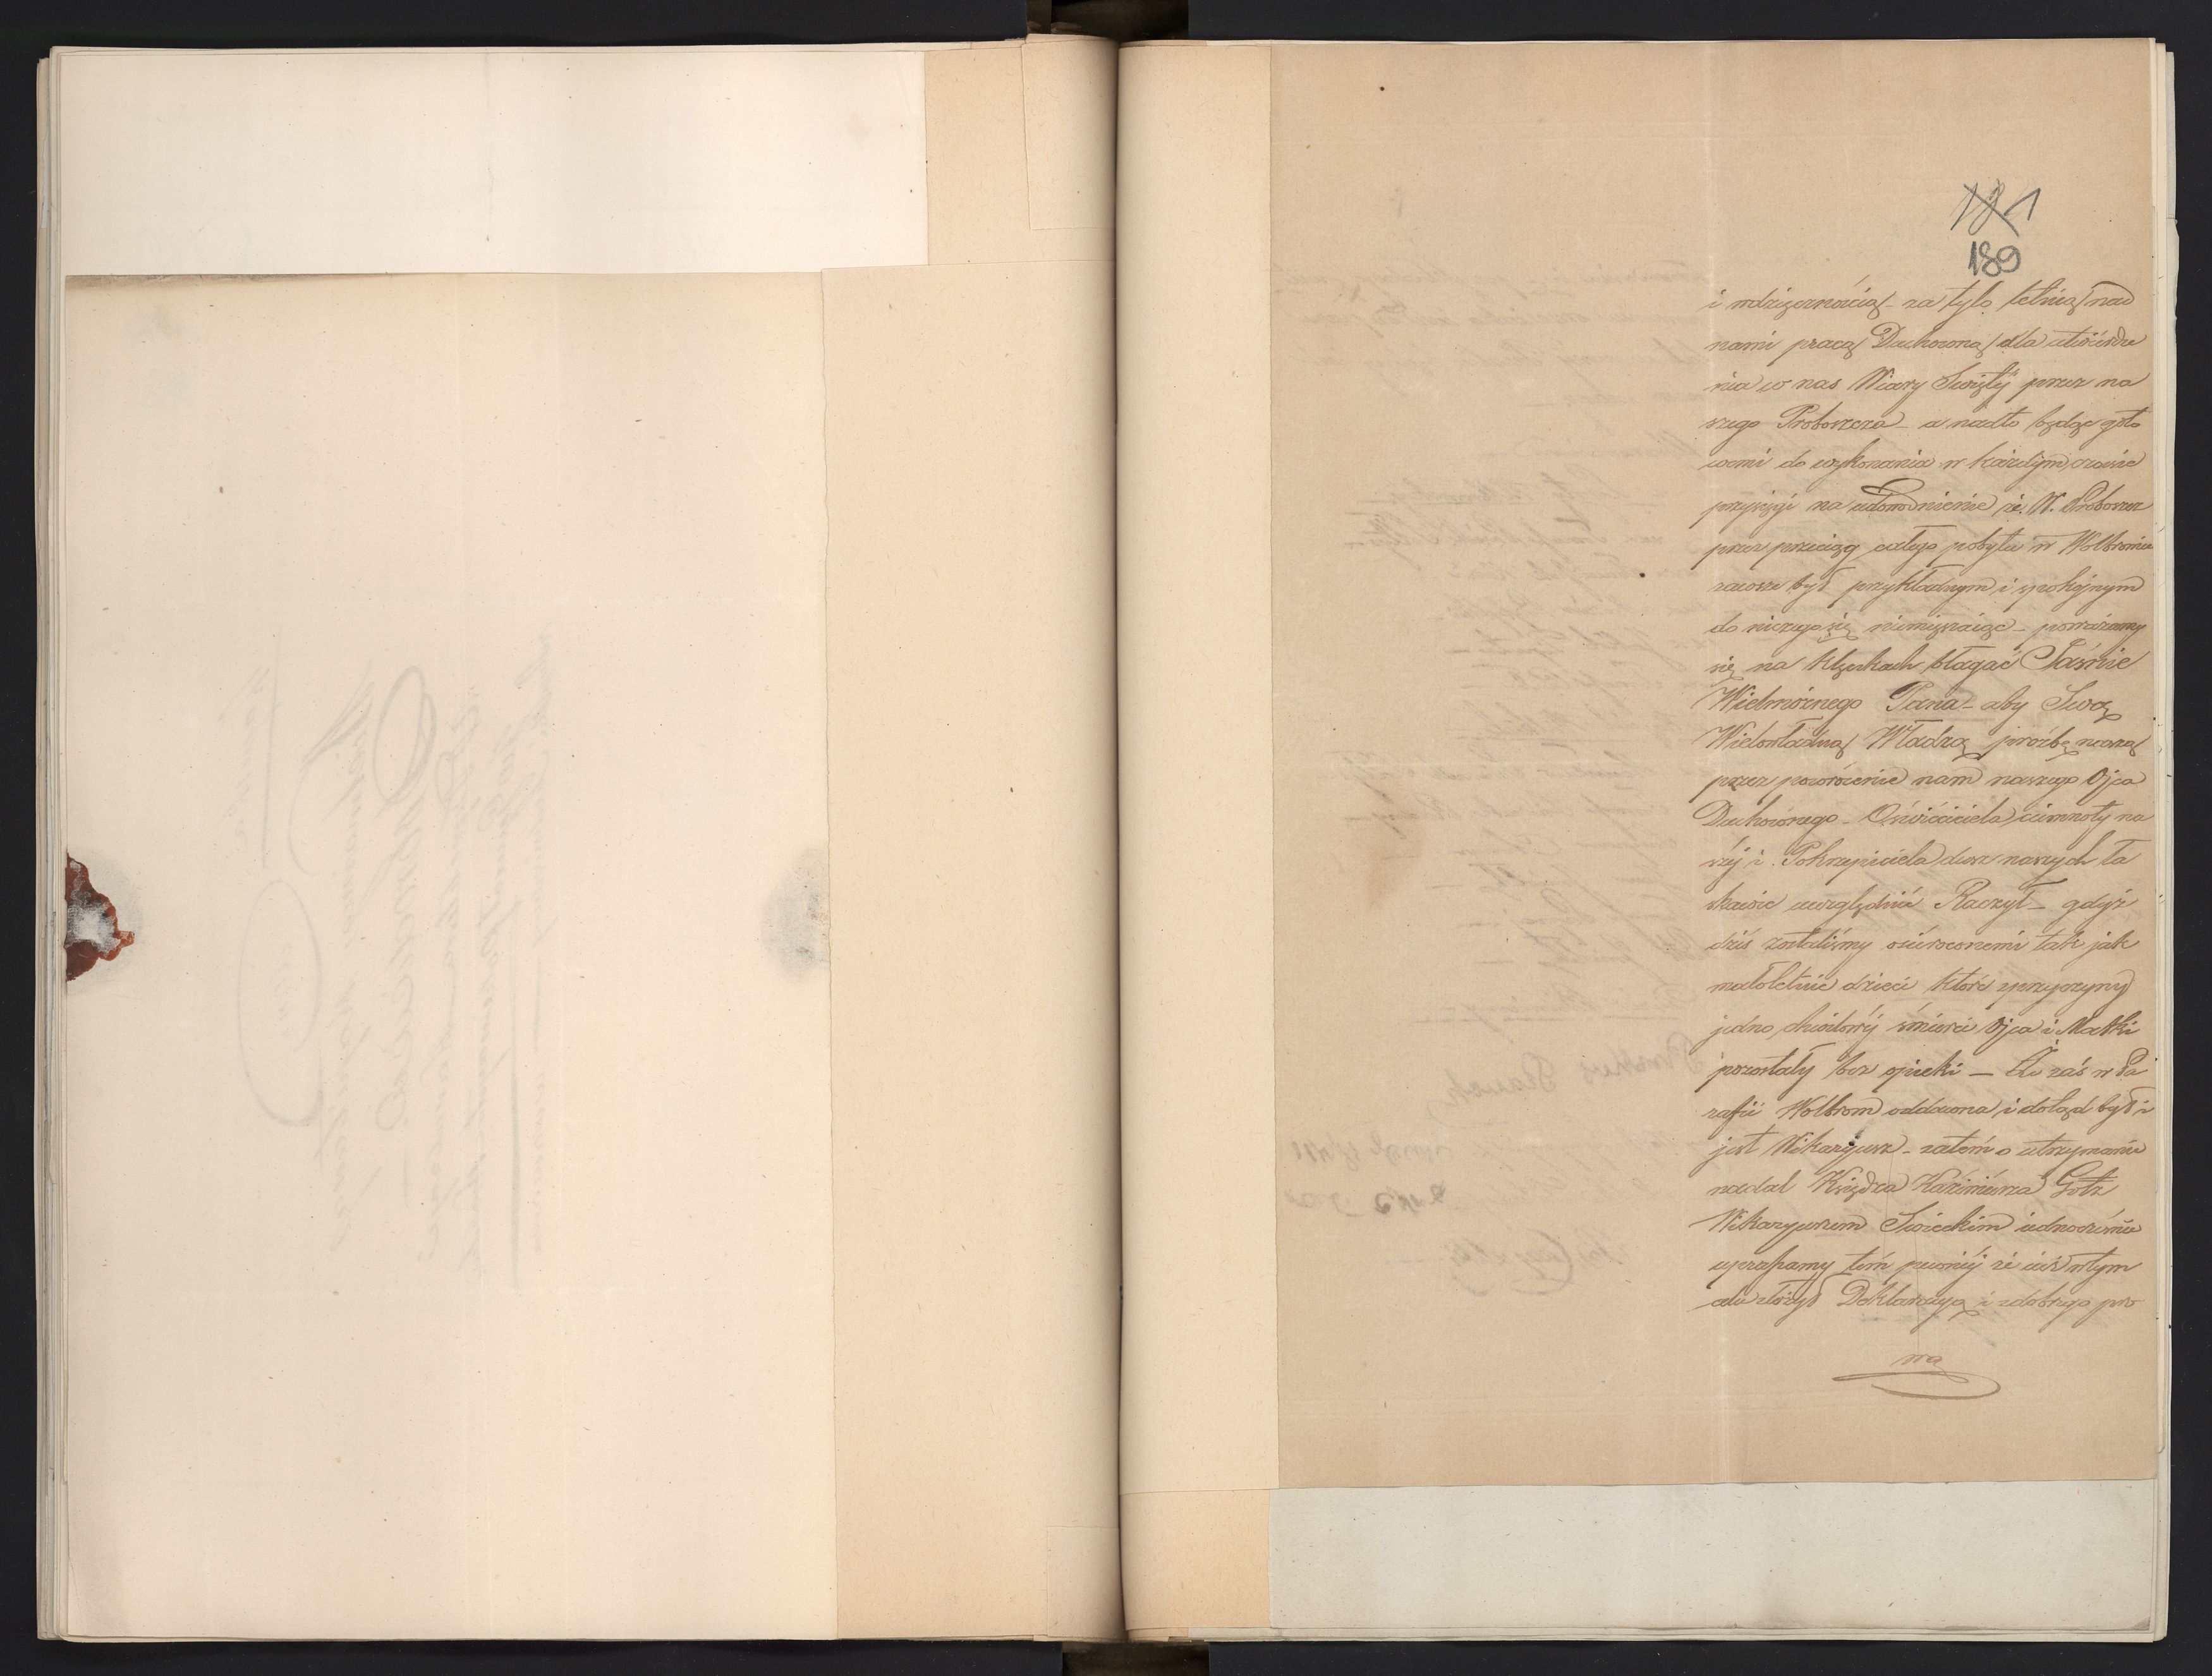 181
189
i wdzięcznością za tylo letnią nad
nami pracą Duchowną dla utwierdze
nia w nas Wiary Świętÿ przez na
szego Proboszcza _ a nadto będąc goto
wemi do wykonania w każdym czasie
przysięgi na udowodnienie że W. Proboszcz
przez przeciąg całego pobytu w Wolbromiu
zawsze był przykładnym i spokojnym
do niczego się niemięszaiąc _ poważamy
się na klęczkach błagać Jaśnie
Wielmożnego Pana _ aby Swą
Wielowładną Władzą proźbę naszą
przez powrócenie nam naszego Ojca
Duchownego _ Oświéciciela ciemnoty na
széj i Pokrzepiciela dusz naszych ła
skawie uwzględnić Raczył _ gdyż
dziś zostaliśmy osieroconemi tak jak
małoletnie dzieci które zprzyczyny
jedno chwilowéj śmierci Ojca i Matki
pozostały bez opieki _ Że zaś w Pa
rafii Wolbrom oddawna i dotąd był i
jest Wikaryusz _ zatém o utrzymanie
nadal Księdza Kaźmiérza Gołz
Wikaryuszem Świeckim iednocześnie
upraszamy tém pewniéj że iuż w tym
celu złożył Deklaracyą i zdobrego pro
wa